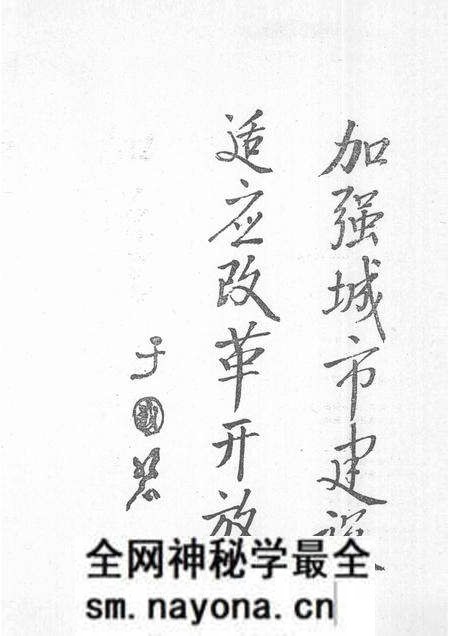 加强城市建设
适应改革开放
全网神秘学最全
sm.nayona.cn